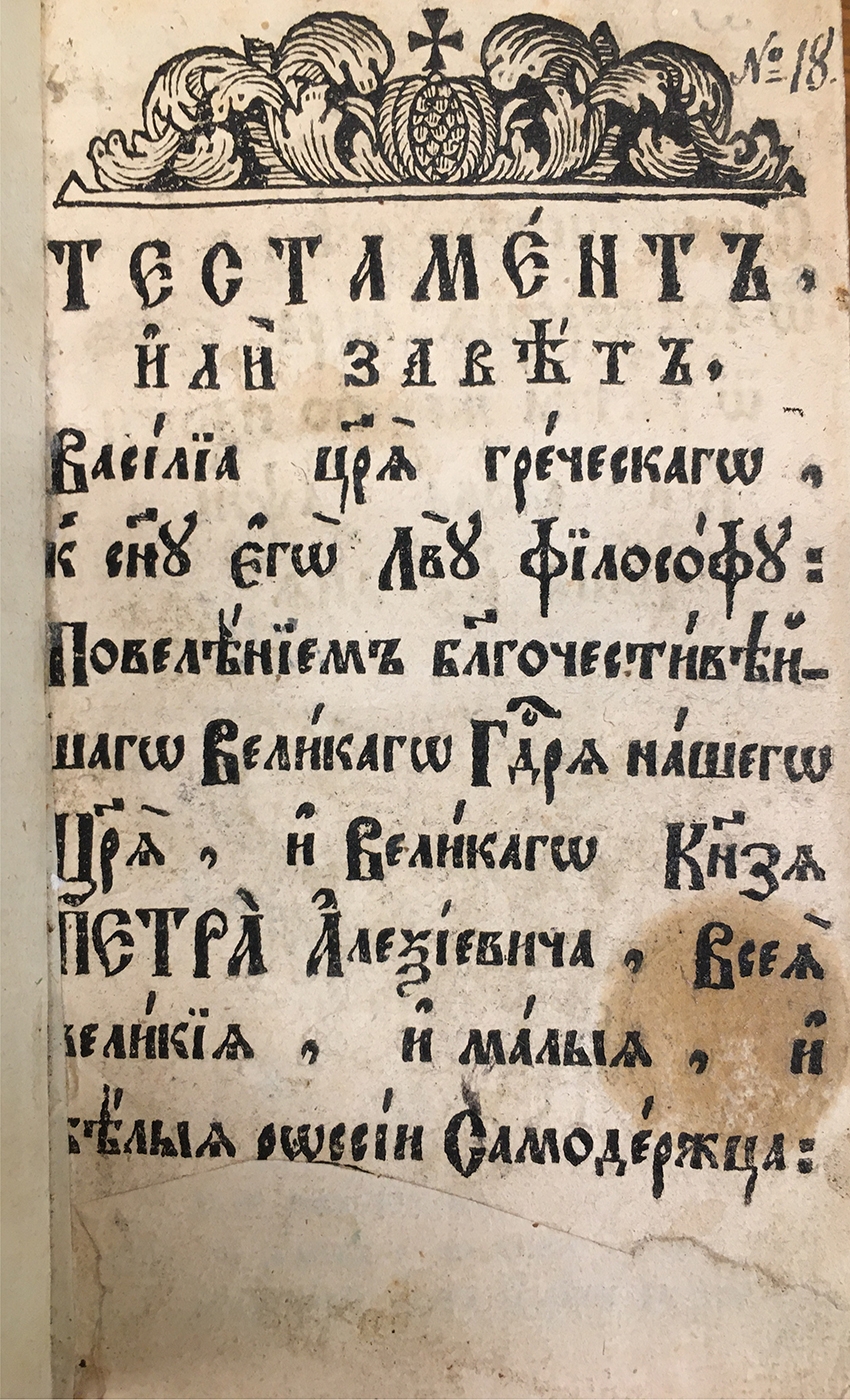 № 18.
ТЕСТАМЕ́НТЪ,
и҆лѝ завѣ́тъ.
Васі́лїа цр҃ѧ̀ гре́ческагѡ ,
к̾ сн҃ꙋ є҆гѡ̀ Льв̀ꙋ фїлосо́фꙋ :
Повелѣ́нїемъ бл҃гочести́вѣй-
шагѡ Вели́кагѡ Гдⷭ҇рѧ на́шегѡ
Цр҃ѧ̀ , и҆ Вели́кагѡ Кн҃зѧ
ПЕТРА̀ А҆леѯі́евича , Всеѧ̀
вели́кїѧ , и҆ ма́лыѧ , и҆
бѣ́лыѧ рѡссі́и Самоде́ржца :